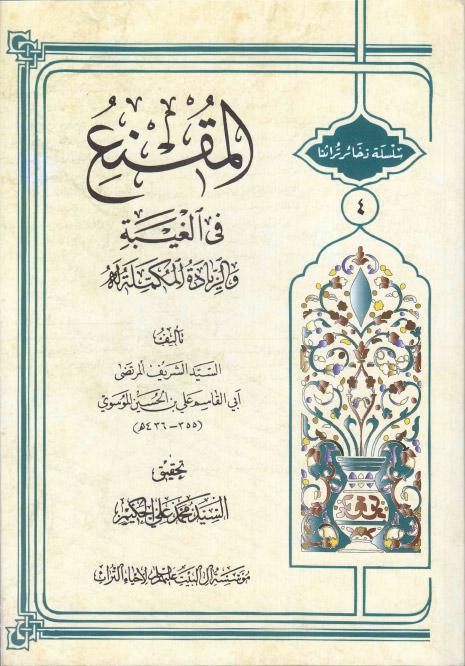 سلسلة ذخائر تراثنا
٤
المقنع
في الغيبة
والزيادة المكملة له
تأليف
السيد الشريف المرتضى
أبي القاسم علي بن الحسين الموسوي
(٣٥٥ - ٤٣٦هـ)
تحقيق
السيد محمد علي الحكيم
مؤسسة آل البيت عليهم السلام لإحياء التراث